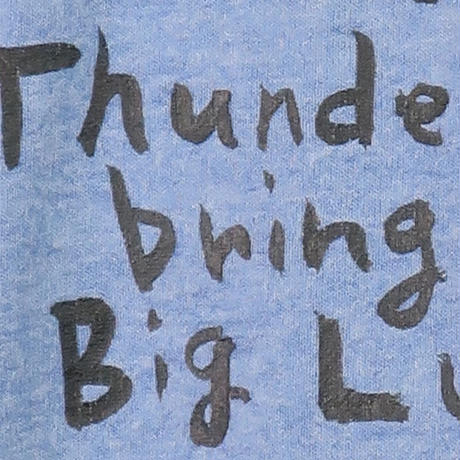 Thunde
bring
Big L